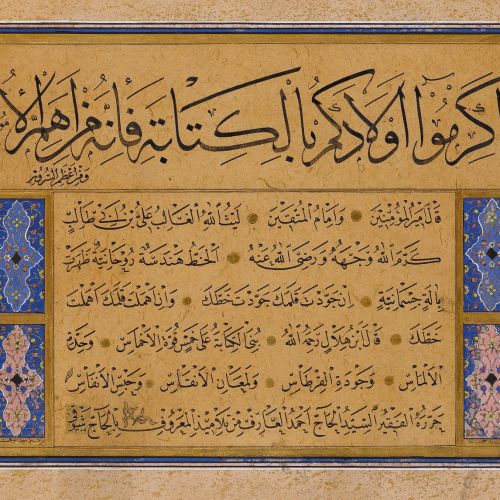 اكرموا اولادكم بالكتابة فانه من اهم الامور
ومن اعظم السرور
قال امير المؤمنين وامام المتقين ليث الله الغالب علي بن ابي طالب
كرم الله وجهه ورضي الله عنه الخط هندسة روحانية ظهرت
بالة جسمانية ان جودت قلمك جودت خطك وان اهملت قلمك اهملت
خطك قال ابن هلال رحمه الله بني الكتابة على خمس قوة الاخماس وحدة
الالماس وجودة القرطاس ولمعان الانقاس وحبس الانفاس
حرره الفقير السيد الحاج احمد العارف من تلاميذ المعروف بالحاج شوقي